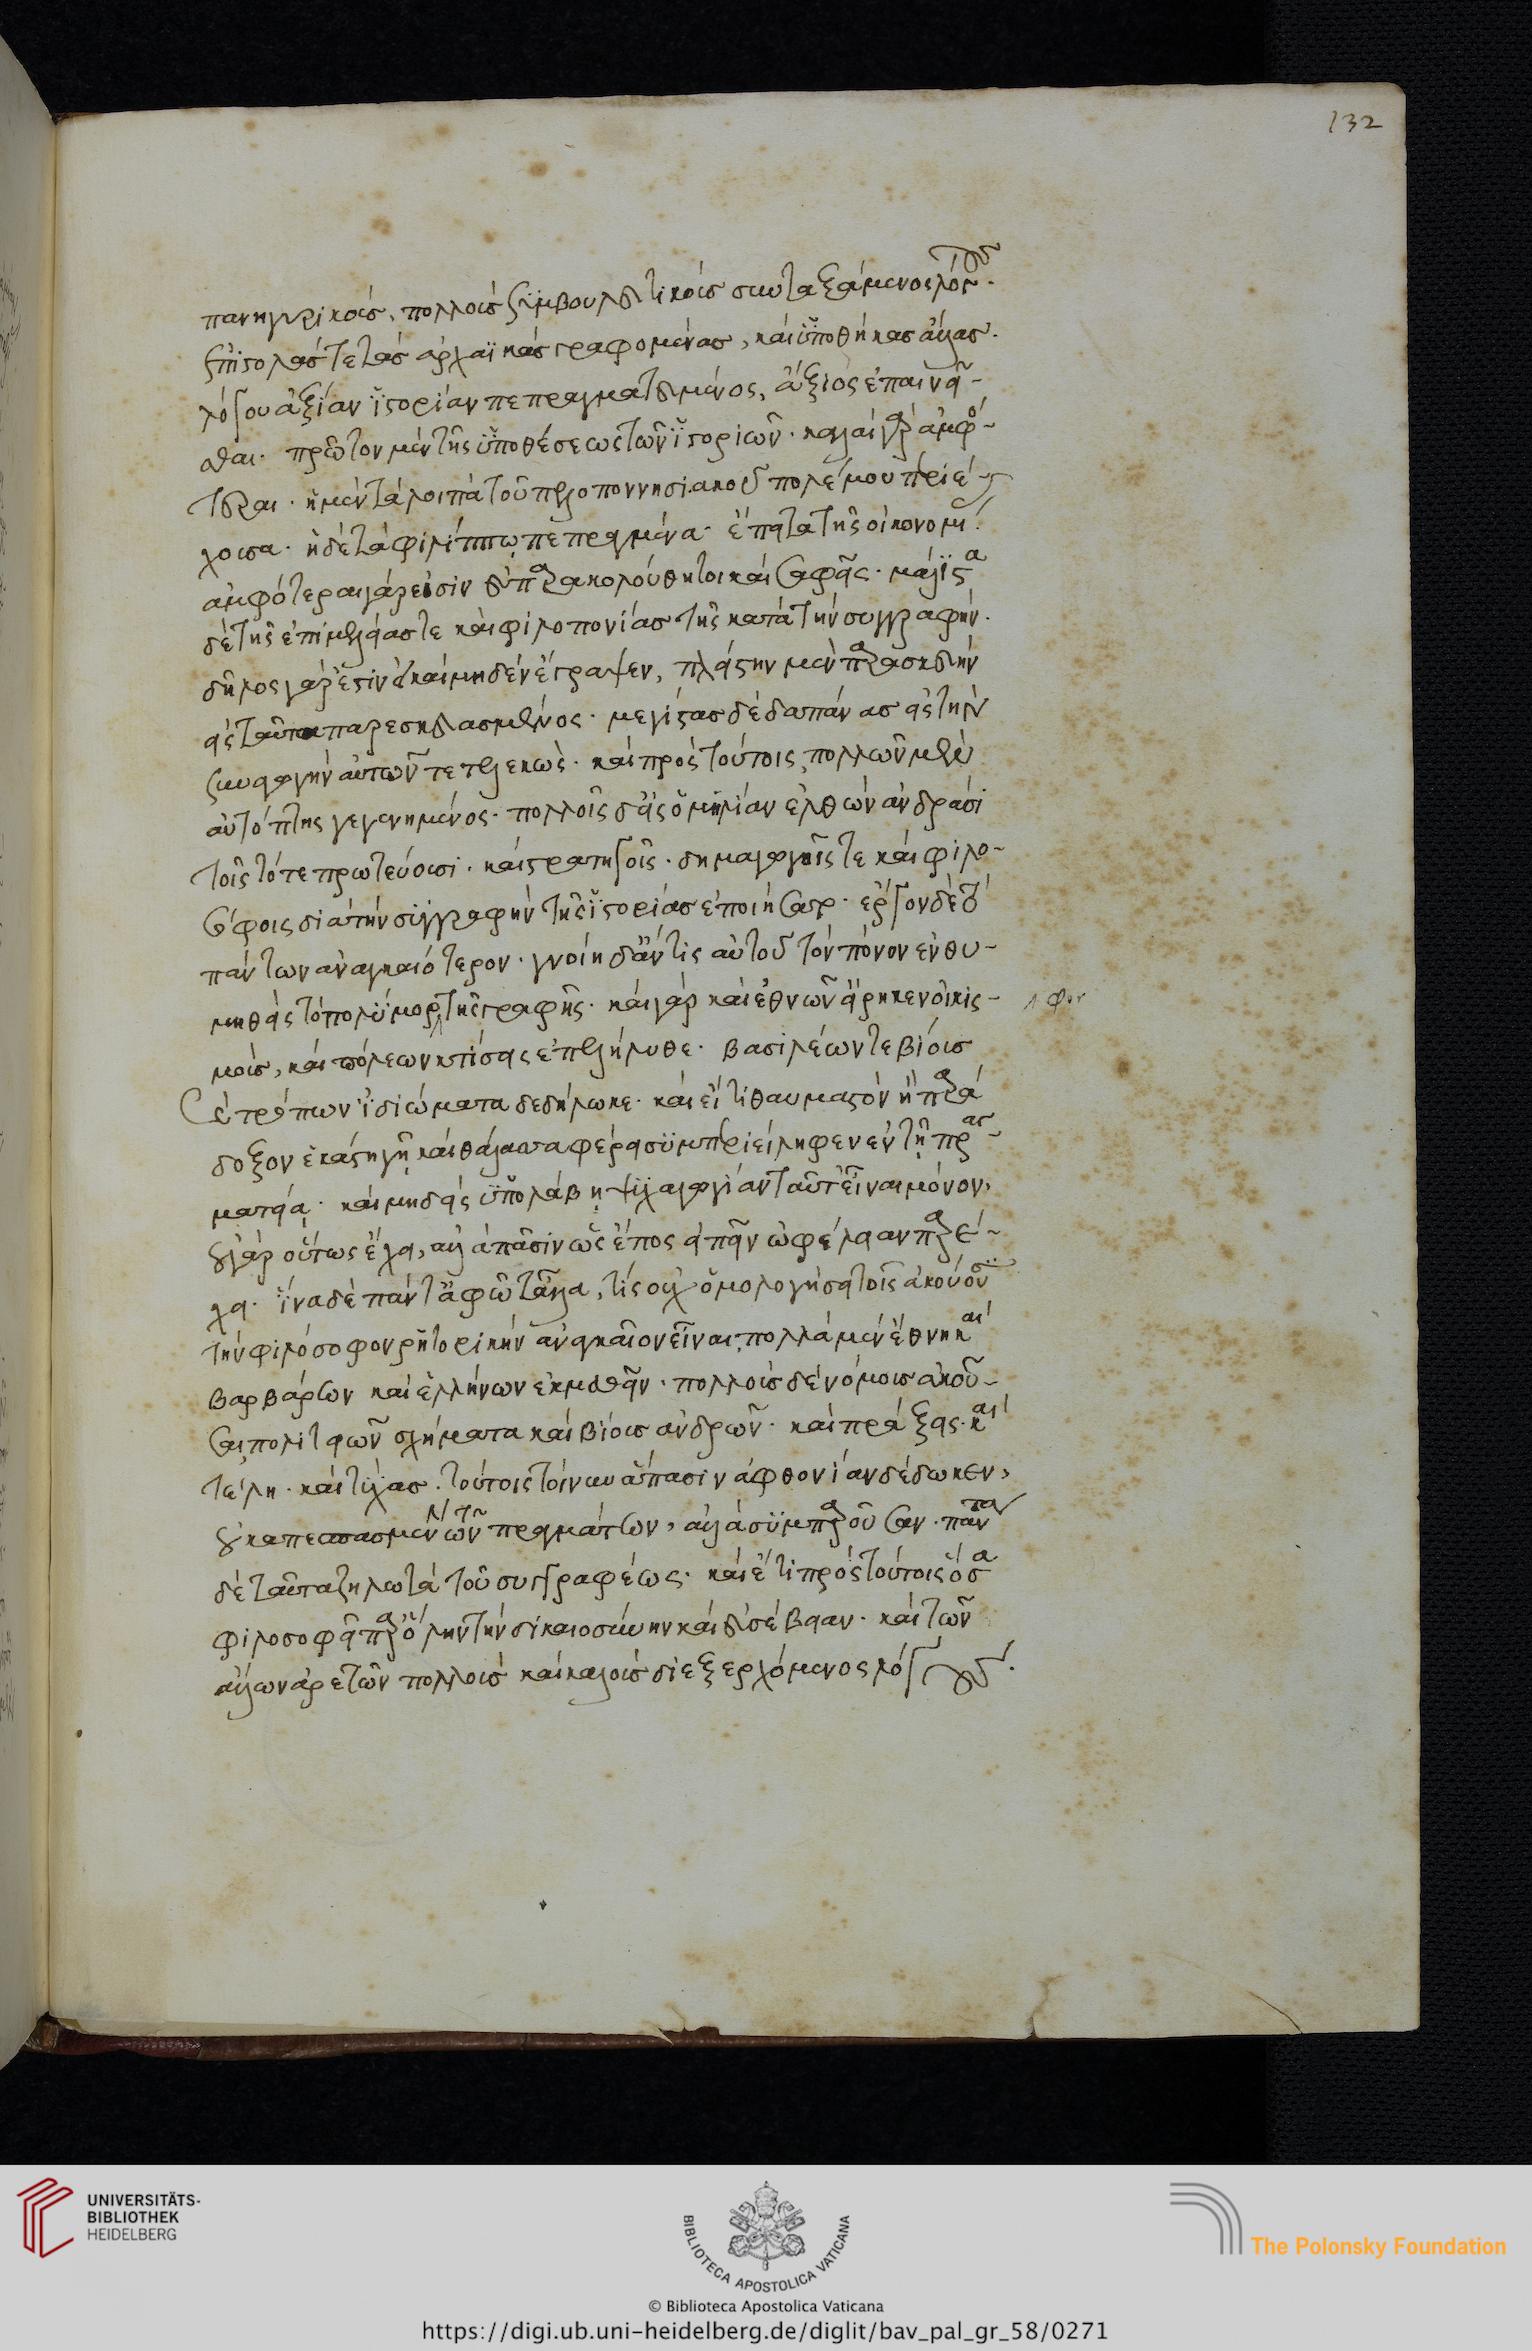 132
πανηγυρικοὺς, πολλοὺς συμβουλευτικοὺς συνταξάμενος λόγους.
ἐπιστολάς τε τὰς ἀρχαϊκὰς γραφομένας, καὶ ὑποθήκας ἄλλας.
λόγου ἀξίαν ἱστορίαν πεπραγματευμένος, ἄξιος ἐπαινεῖ-
σθαι. πρῶτον μὲν τῆς ὑποθέσεως τῶν ἱστοριῶν. καλαὶ γὰρ ἀμφό-
τεραι. ἡ μὲν τὰ λοιπὰ τοῦ πελοποννησιακοῦ πολέμου περιέ-
χουσα. ἡ δὲ τὰ φιλίππω πεπραγμένα. ἔπειτα τῆς οἰκονομίας.
ἀμφότεραι γάρ εἰσιν εὐπαρακολούθητοι καὶ σαφεῖς. μάλιστα
δὲ τῆς ἐπιμελείας τε καὶ φιλοπονίας τῆς κατὰ τὴν συγγραφήν.
δῆλος γάρ ἐστιν εἰ καὶ μηδὲν ἔγραψεν, πλείστην μὲν παρασκευὴν
εἰς ταῦτα παρεσκευασμένος. μεγίστας δὲ δαπάνας εἰς τὴν
συναγωγὴν αὐτῶν τετελεκώς. καὶ πρὸς τούτοις, πολλῶν μὲν
αὐτόπτης γεγενημένος. πολλοῖς δ' εἰς ὁμιλίαν ἐλθὼν ἀνδράσι
τοῖς τότε πρωτεύουσι. καὶ στρατηγοῖς. δημαγωγοῖς τε καὶ φιλο-
σόφοις διὰ τὴν συγγραφὴν τῆς ἱστορίας ἐποιήσατο. ἔργον δὲ τὸ
πάντων ἀναγκαιότερον. γνοίη δ' ἄν τις αὐτοῦ τὸν πόνον ἐνθυ-
μηθεὶς τὸ πολύμορ τῆς γραφῆς. καὶ γὰρ καὶ ἐθνῶν εἴρηκεν οἰκισ-
μοὺς, καὶ πόλεων κτίσεις ἐπελήλυθε. βασιλέων τε βίους
καὶ τρόπων ἰδιώματα δεδήλωκε. καὶ εἴ τι θαυμαστὸν ἢ παρά
δοξον ἑκάστη γῆ καὶ θάλασσα φέρει συμπεριείληφεν ἐν τῇ πραγ-
ματείᾳ. καὶ μηδεὶς ὑπολάβῃ ψυχαγωγίαν ταῦτ' εἶναι μόνον,
οὐ γὰρ οὕτως ἔχει, ἀλλ' ἁπᾶσιν ὡς ἔπος εἰπεῖν ὠφέλειαν παρέ-
χει. ἵνα δὲ πάντ' ἀφῶ τἄλλα, τίς οὐχ ὁμολογήσει τοῖς ἀσκοῦσι
τὴν φιλόσοφον ῥητορικὴν ἀναγκαῖον εἶναι, πολλὰ μὲν ἔθνη καὶ
βαρβάρων καὶ ἑλλήνων ἐκμαθεῖν. πολλοὺς δὲ νόμους ἀκοῦ-
σαι, πολιτειῶν σχήματα καὶ βίους ἀνδρῶν. καὶ πράξεις. καὶ
τέλη. καὶ τύχας. τούτοις τοίνυν ἅπασιν ἀφθονίαν δέδωκεν,
οὐκ ἀπεσπασμένων τῶν πραγμάτων, ἀλλὰ συμπαροῦσαν. πάντα
δὲ ταῦτα ζηλωτὰ τοῦ συγγραφέως. καὶ ἔτι πρὸς τούτοις ὅσα
φιλοσοφεῖ παρ' ὅλην τὴν δικαιοσύνην καὶ εὐσέβειαν. καὶ τῶν
ἄλλων ἀρετῶν πολλοὺς καὶ καλοὺς διεξερχόμενος λόγους.
UNIVERSITÄTS-
BIBLIOTHEK
HEIDELBERG
BIBLIOTECA APOSTOLICA VATICANA
The Polonsky Foundation
© Biblioteca Apostolica Vaticana
https://digi.ub.uni-heidelberg.de/diglit/bav_pal_gr_58/0271